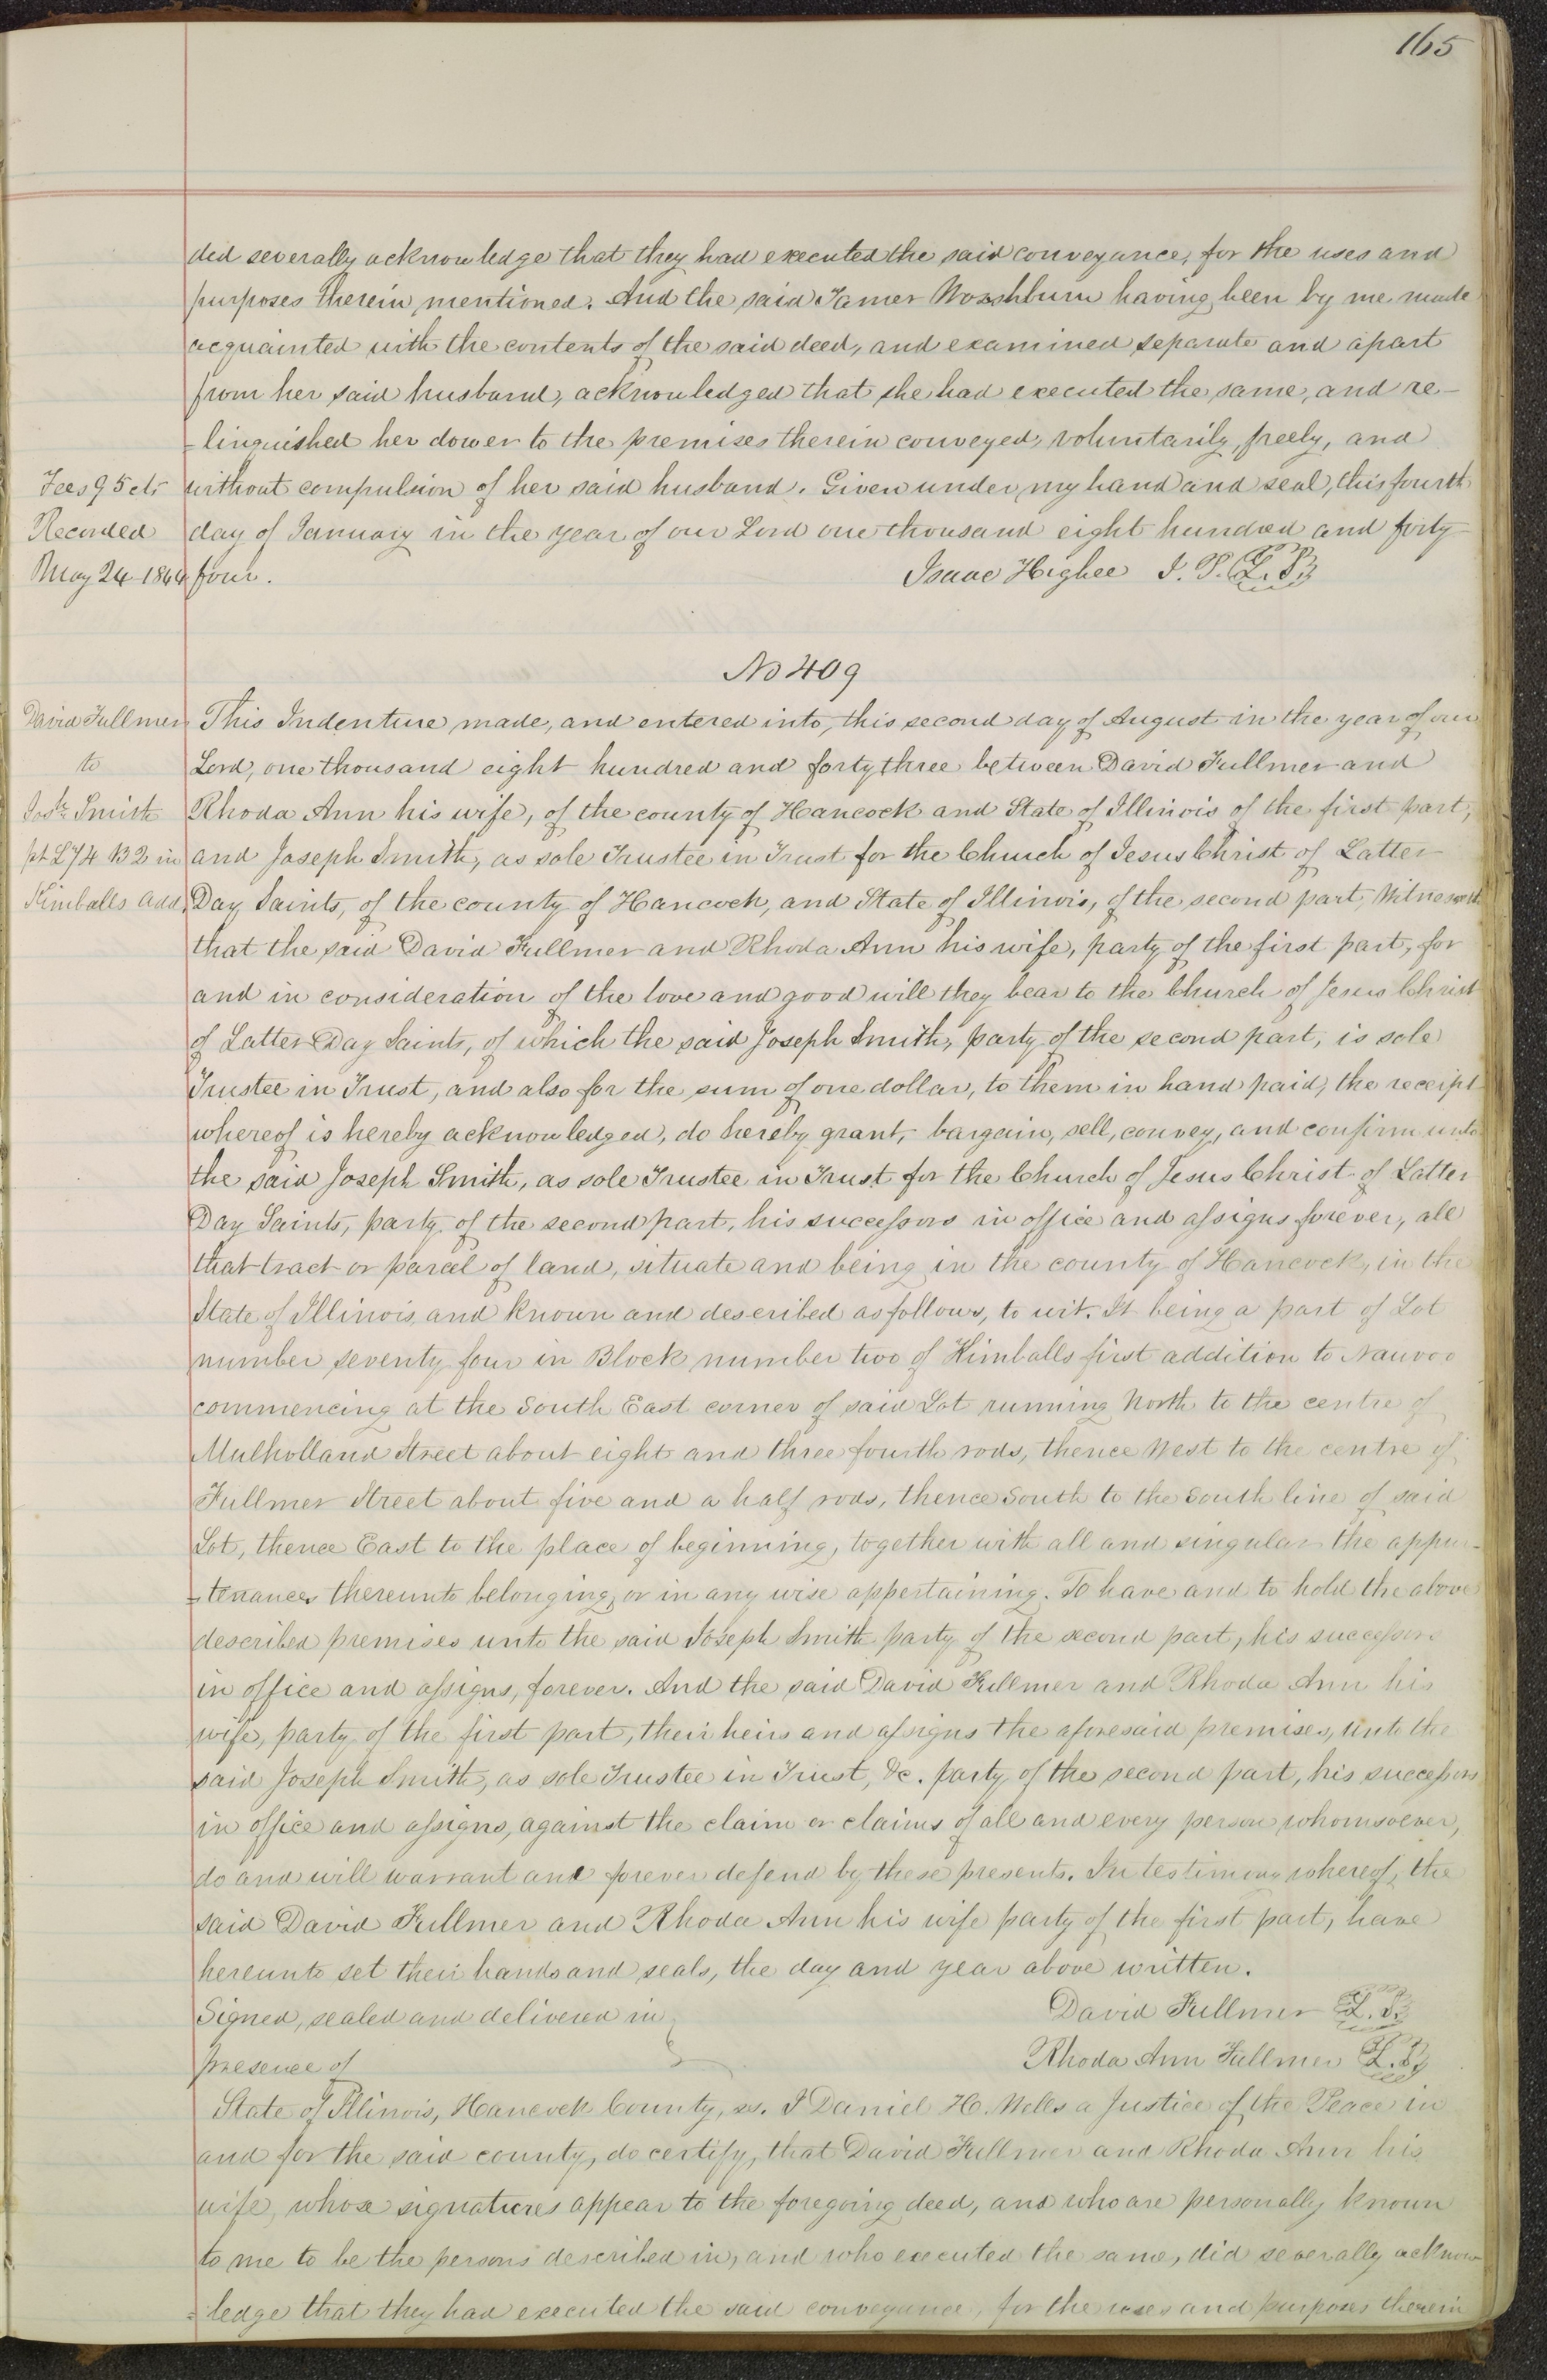 165
did severally acknowledge that they had executed the said conveyance, for the uses and
purposes therein mentioned. And the said Tamer Washburn having been by me made
acquainted with the contents of the said deed, and examined separate and apart
from her said husband, acknowledged that she had executed the same, and re-
-linquished her dower to the premises therein conveyed, voluntarily, freely, and
Fees 95 cts without compulsion of her said husband. Given under my hand and seal, this fourth
Recorded day of January in the year of our Lord one thousand eight hundred and forty
May 24 1844 four. Isaac Higbee J. P. L. S.
No 409
David Fullmer This Indenture made, and entered into, this second day of August in the year of our
to Lord, one thousand eight hundred and forty three between David Fullmer and
Josh. Smith Rhoda Ann his wife, of the county of Hancock and State of Illinois of the first part,
pt L 74 B 2 in and Joseph Smith, as sole Trustee in Trust for the Church of Jesus Christ of Latter
Kimballs add. Day Saints, of the county of Hancock, and State of Illinois, of the second part, Witnesseth
that the said David Fullmer and Rhoda Ann his wife, party of the first part, for
and in consideration of the love and good will they bear to the Church of Jesus Christ
of Latter Day Saints, of which the said Joseph Smith, party of the second part, is sole
Trustee in Trust, and also for the sum of one dollar, to them in hand paid, the receipt
whereof is hereby acknowledged, do hereby grant, bargain, sell, convey, and confirm unto
the said Joseph Smith, as sole Trustee in Trust for the Church of Jesus Christ of Latter
Day Saints, party of the second part, his successors in office and assigns forever, all
that tract or parcel of land, situate and being in the county of Hancock, in the
State of Illinois, and known and described as follows, to wit. It being a part of Lot
number seventy four in Block number two of Kimballs first addition to Nauvoo
commencing at the South East corner of said Lot running North to the centre of
Mulholland Street about eight and three fourth rods, thence West to the centre of
Fullmer Street about five and a half rods, thence South to the South line of said
Lot, thence East to the place of beginning, together with all and singular the appur-
-tenances thereunto belonging, or in any wise appertaining. To have and to hold the above
described premises unto the said Joseph Smith party of the second part, his successors
in office and assigns, forever. And the said David Fullmer and Rhoda Ann his
wife, party of the first part, their heirs and assigns the aforesaid premises, unto the
said Joseph Smith, as sole Trustee in Trust, &c. party of the second part, his successors
in office and assigns, against the claim or claims of all and every person whomsoever,
do and will warrant and forever defend by these presents. In testimony whereof, the
said David Fullmer and Rhoda Ann his wife party of the first part, have
hereunto set their hands and seals, the day and year above written.
Signed, sealed and delivered in David Fullmer L. S.
presence of Rhoda Ann Fullmer L. S.
State of Illinois, Hancock County, ss. I Daniel H. Wells a Justice of the Peace in
and for the said county, do certify, that David Fullmer and Rhoda Ann his
wife, whose signatures appear to the foregoing deed, and who are personally known
to me to be the persons described in, and who executed the same, did severally acknow
-ledge that they had executed the said conveyance, for the uses and purposes therein